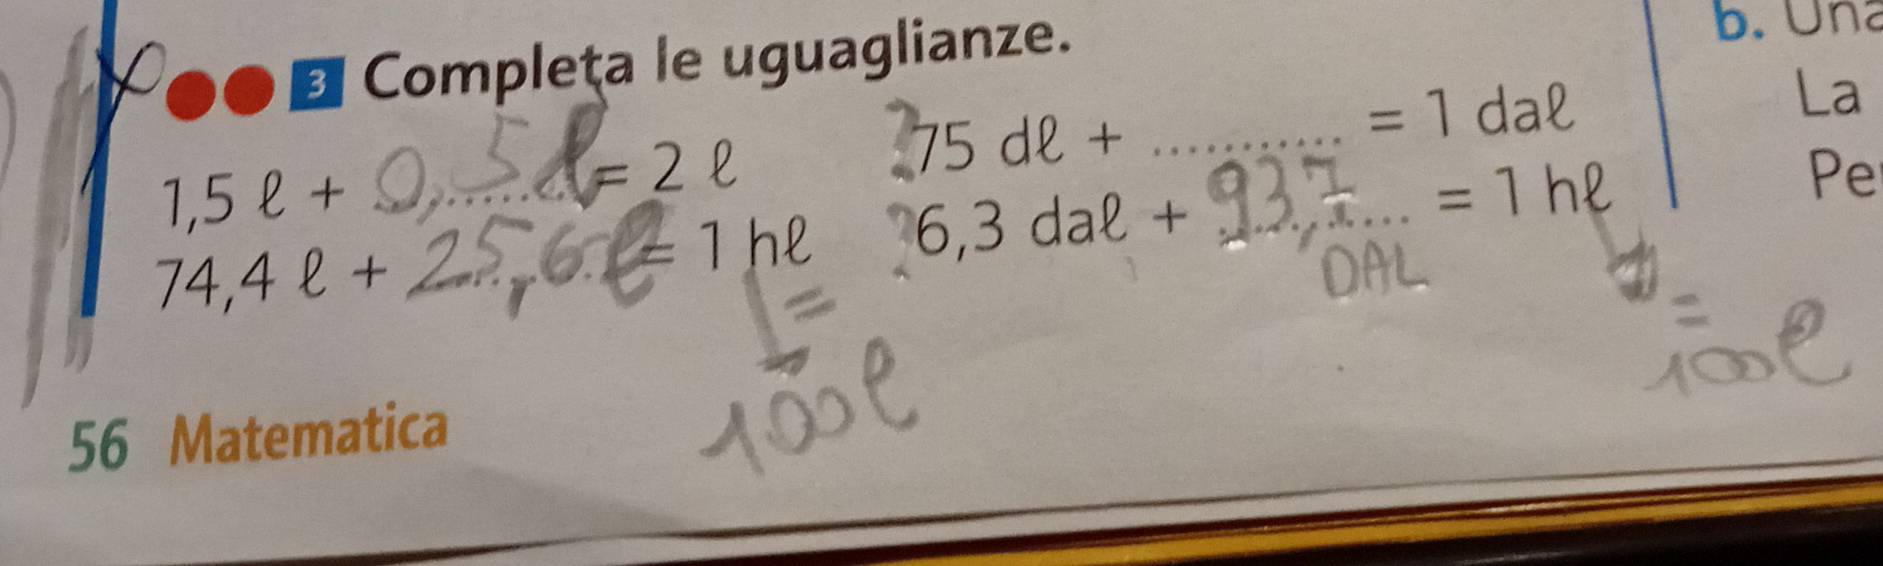 3 Completa le uguaglianze.
1,5 ℓ + 0,5 ℓ = 2 ℓ
74,4 ℓ + 25,6 ℓ = 1 hℓ
= 100 ℓ
? 75 dℓ + ............ = 1 daℓ
? 6,3 daℓ + 93,7 DAL = 1 hℓ
= 100 ℓ
b. Una
La
Per
56 Matematica